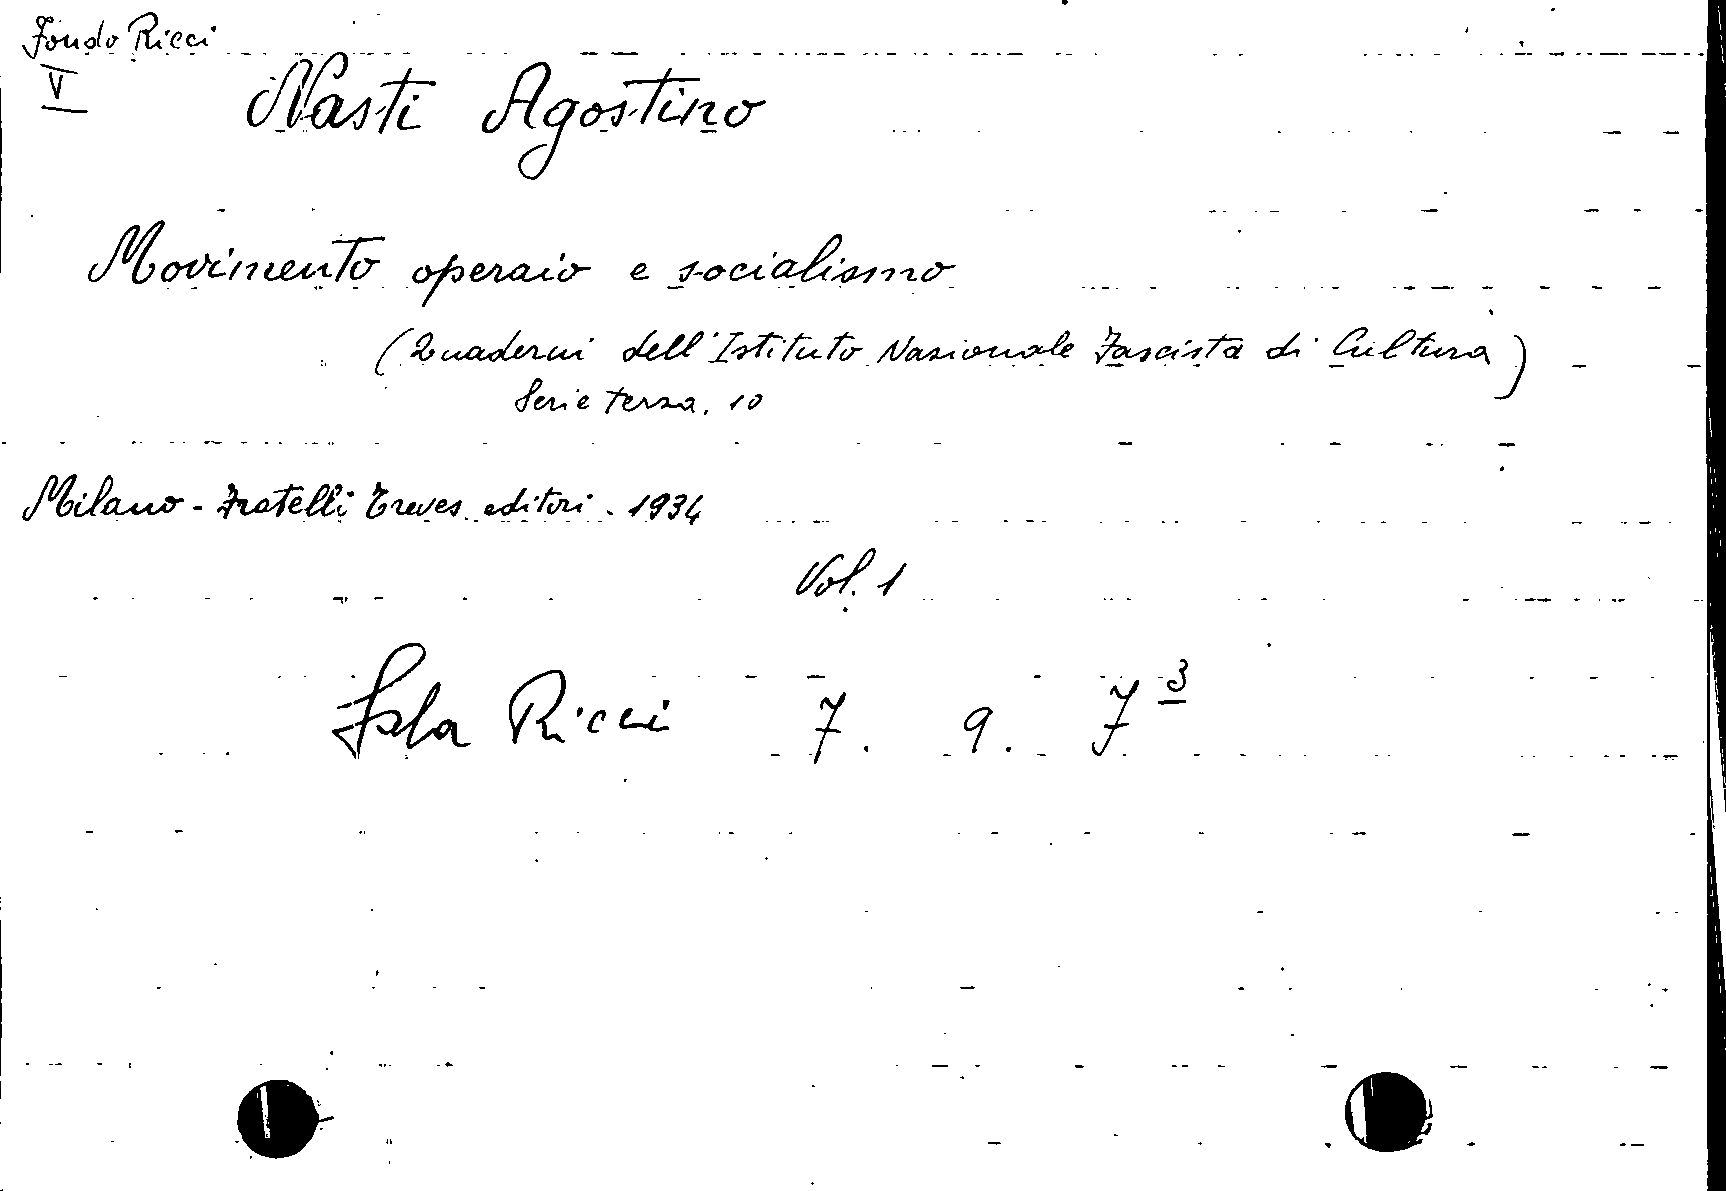 Fondo Ricci
V
Nasti Agostino
Movimento operaio e socialismo
(Quaderni dell'Istituto Nazionale Fascista di Cultura)
Serie terza. 10
Milano - Fratelli Treves editori - 1934
Vol. 1
Sala Ricci 7. 9. 7 3